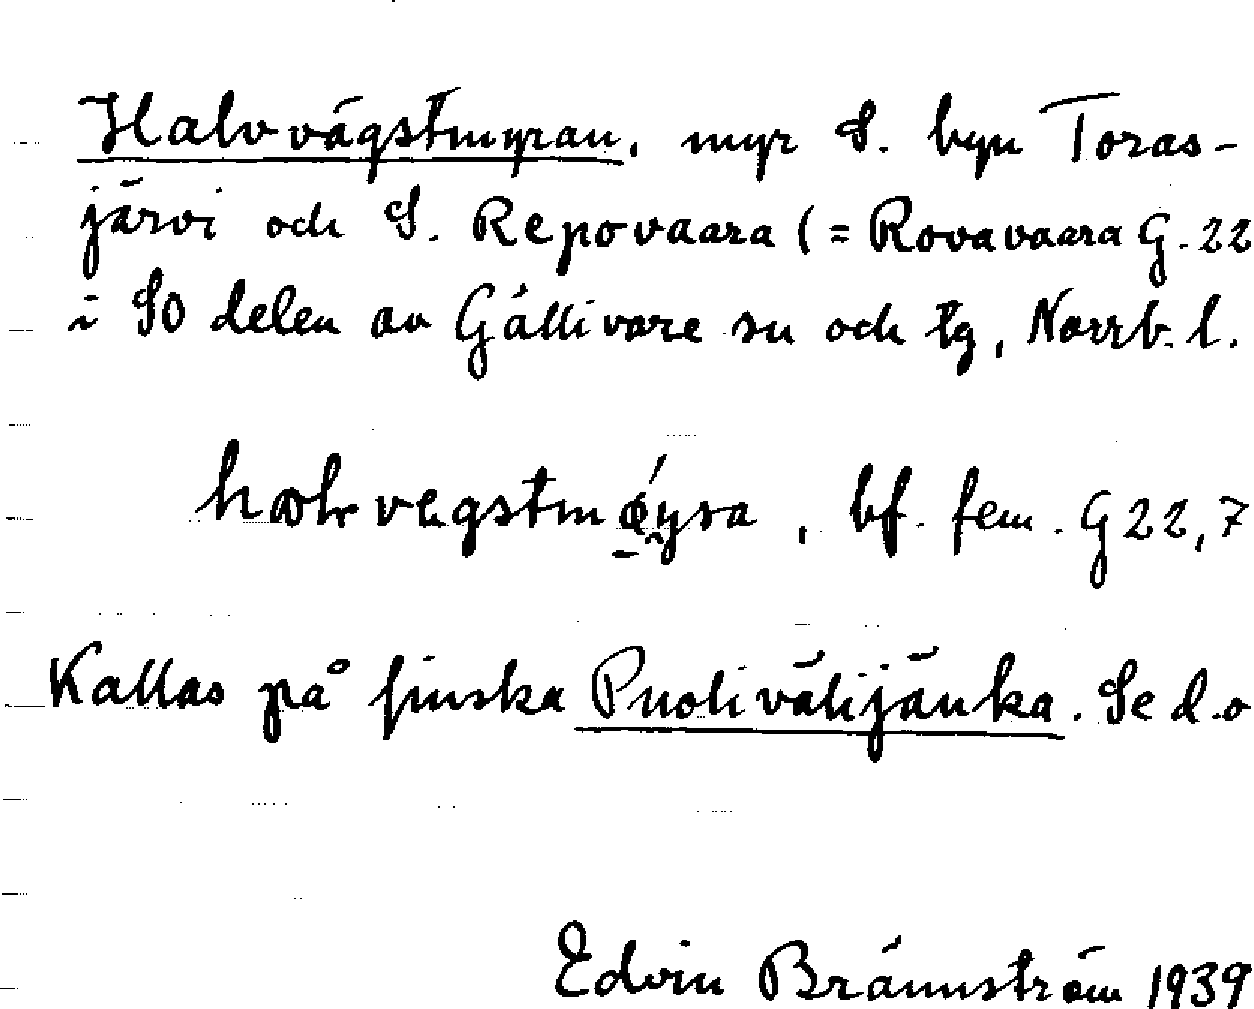 Halvvägstmyran, myr S. byn Toras-
järvi och S. Repovaara (= Rovavaara G. 22
i SO delen av Gällivare sn och tg, Norrb. l.
bf. fem. G 22,7
Kallas på finska Puolivälijänka. Se d.o
Edvin Brännström 1939